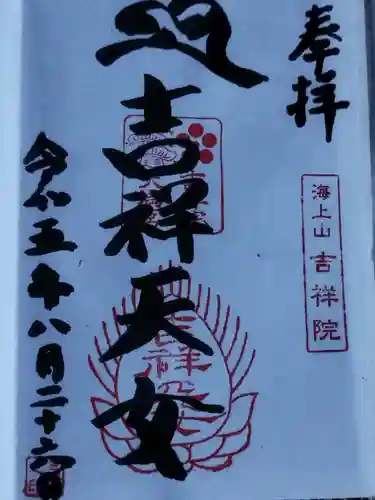 奉拝
海上山 吉祥院
吉祥天女
令和五年八月二十六日